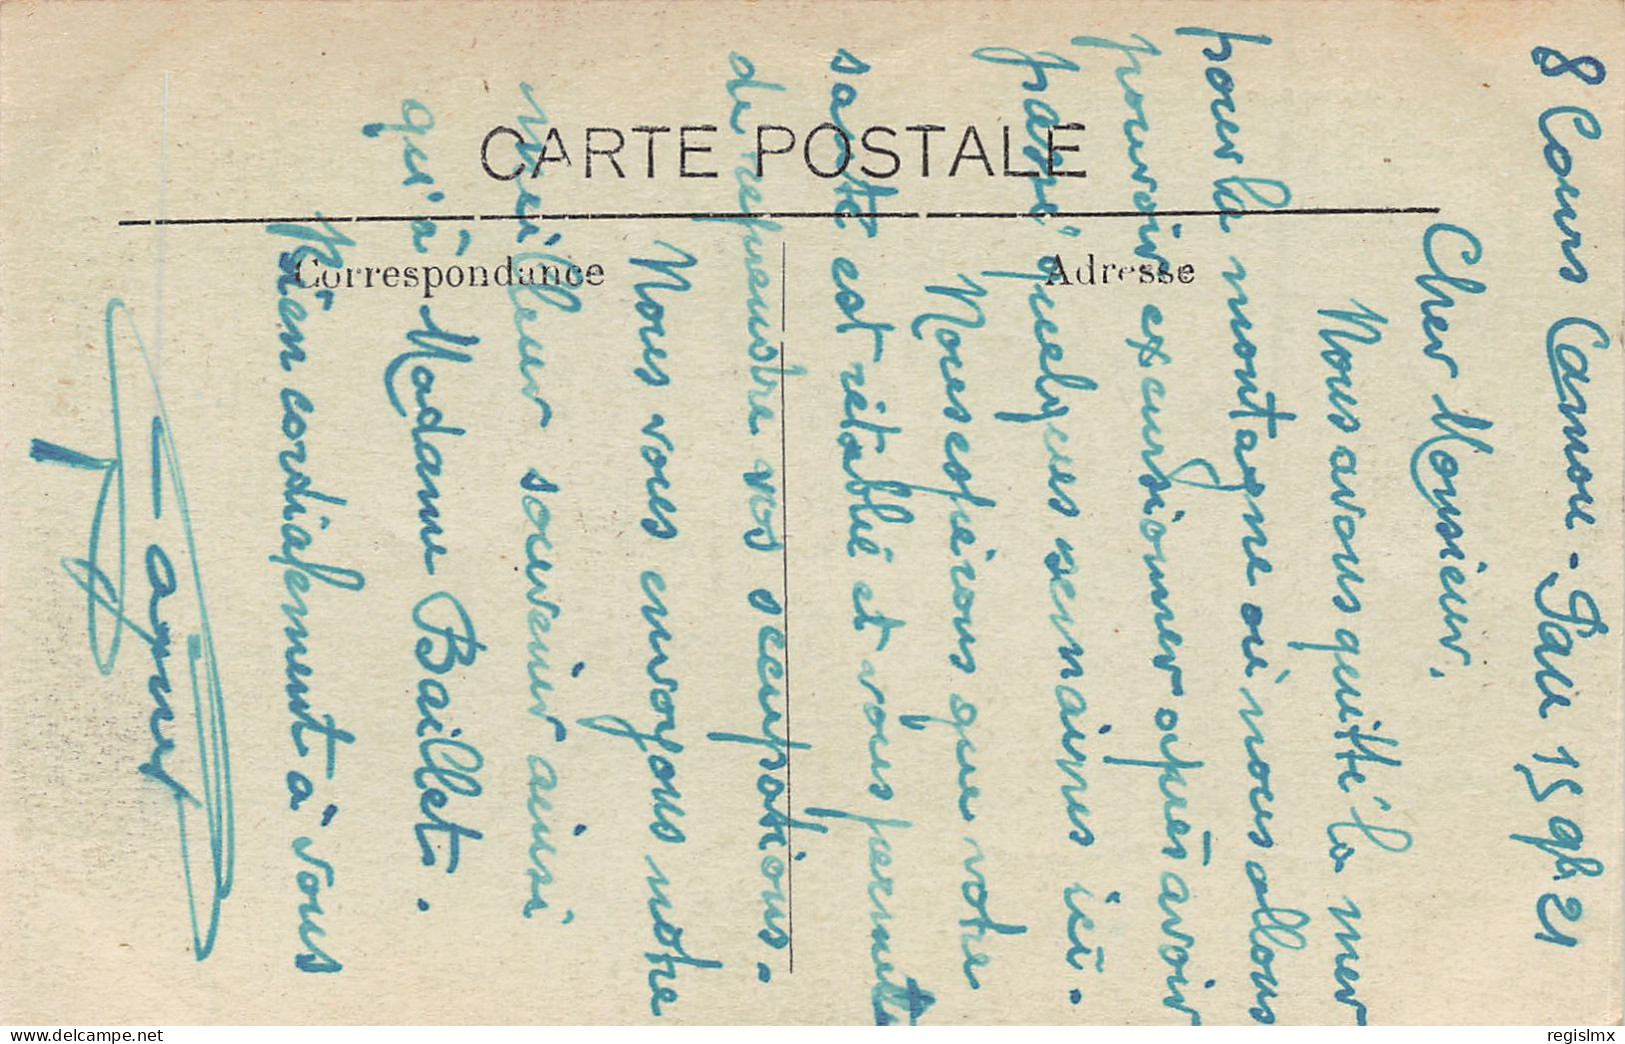 CARTE POSTALE
Correspondance
Adresse
8 Cours Camou - Pau 15 9h 21
Cher Monsieur.
Nous avons quitté la mer
pour la montagne où nous allons
pouvoir excursionner après avoir
passé quelques semaines ici.
Nous espérons que votre
santé est rétablie et vous permet
de reprendre vos occupations.
Nous vous envoyons notre
meilleur souvenir ainsi
qu'à Madame Baillet.
Bien cordialement à vous
regislmx